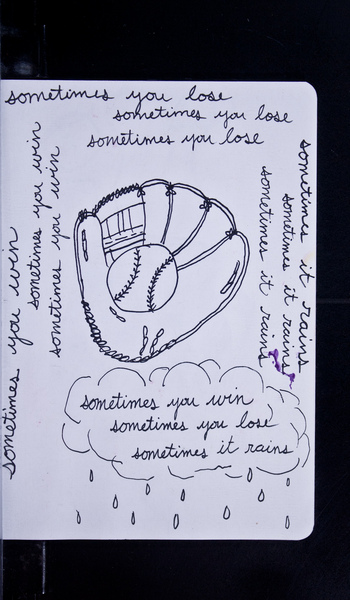 sometimes you lose
sometimes you lose
sometimes you lose
sometimes you win
sometimes you win
sometimes you win
sometimes it rains
sometimes it rains
sometimes it rains
sometimes you win
sometimes you lose
sometimes it rains